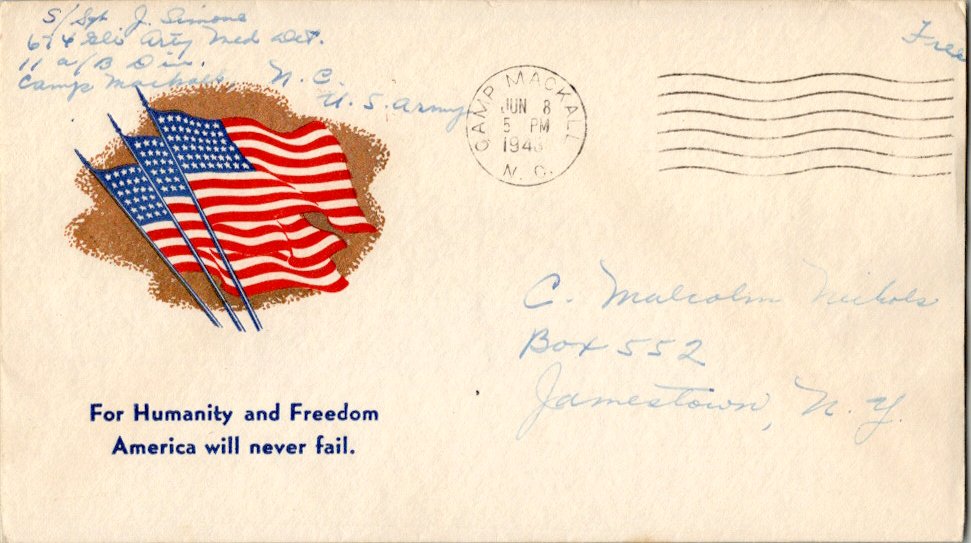 S/Sgt J. Simone
674 Gli Arty Med Det.
11 a/B Div.
Camp Mackall, N. C.
U. S. Army
Free
CAMP MACKALL
JUN 8
5 PM
1943
N. C.
C. Malcolm Nichols
Box 552
Jamestown, N. Y.
For Humanity and Freedom
America will never fail.